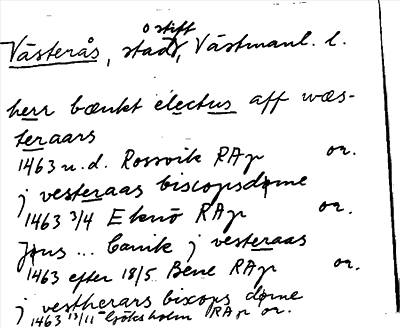 o stift
Västerås, stad, Västmanl. l.
herr bænkt electus aff wæs-
teraars
1463 u.d. Rossvik RAp or.
j vesteraas biscopsdøme
1463 3/4 Eknö RAp or.
Jøns ... Canik j vesteraas
1463 efter 18/5 Bene RAp or.
j vestherars bixops døme
1463 13/11 Göksholm RAp or.